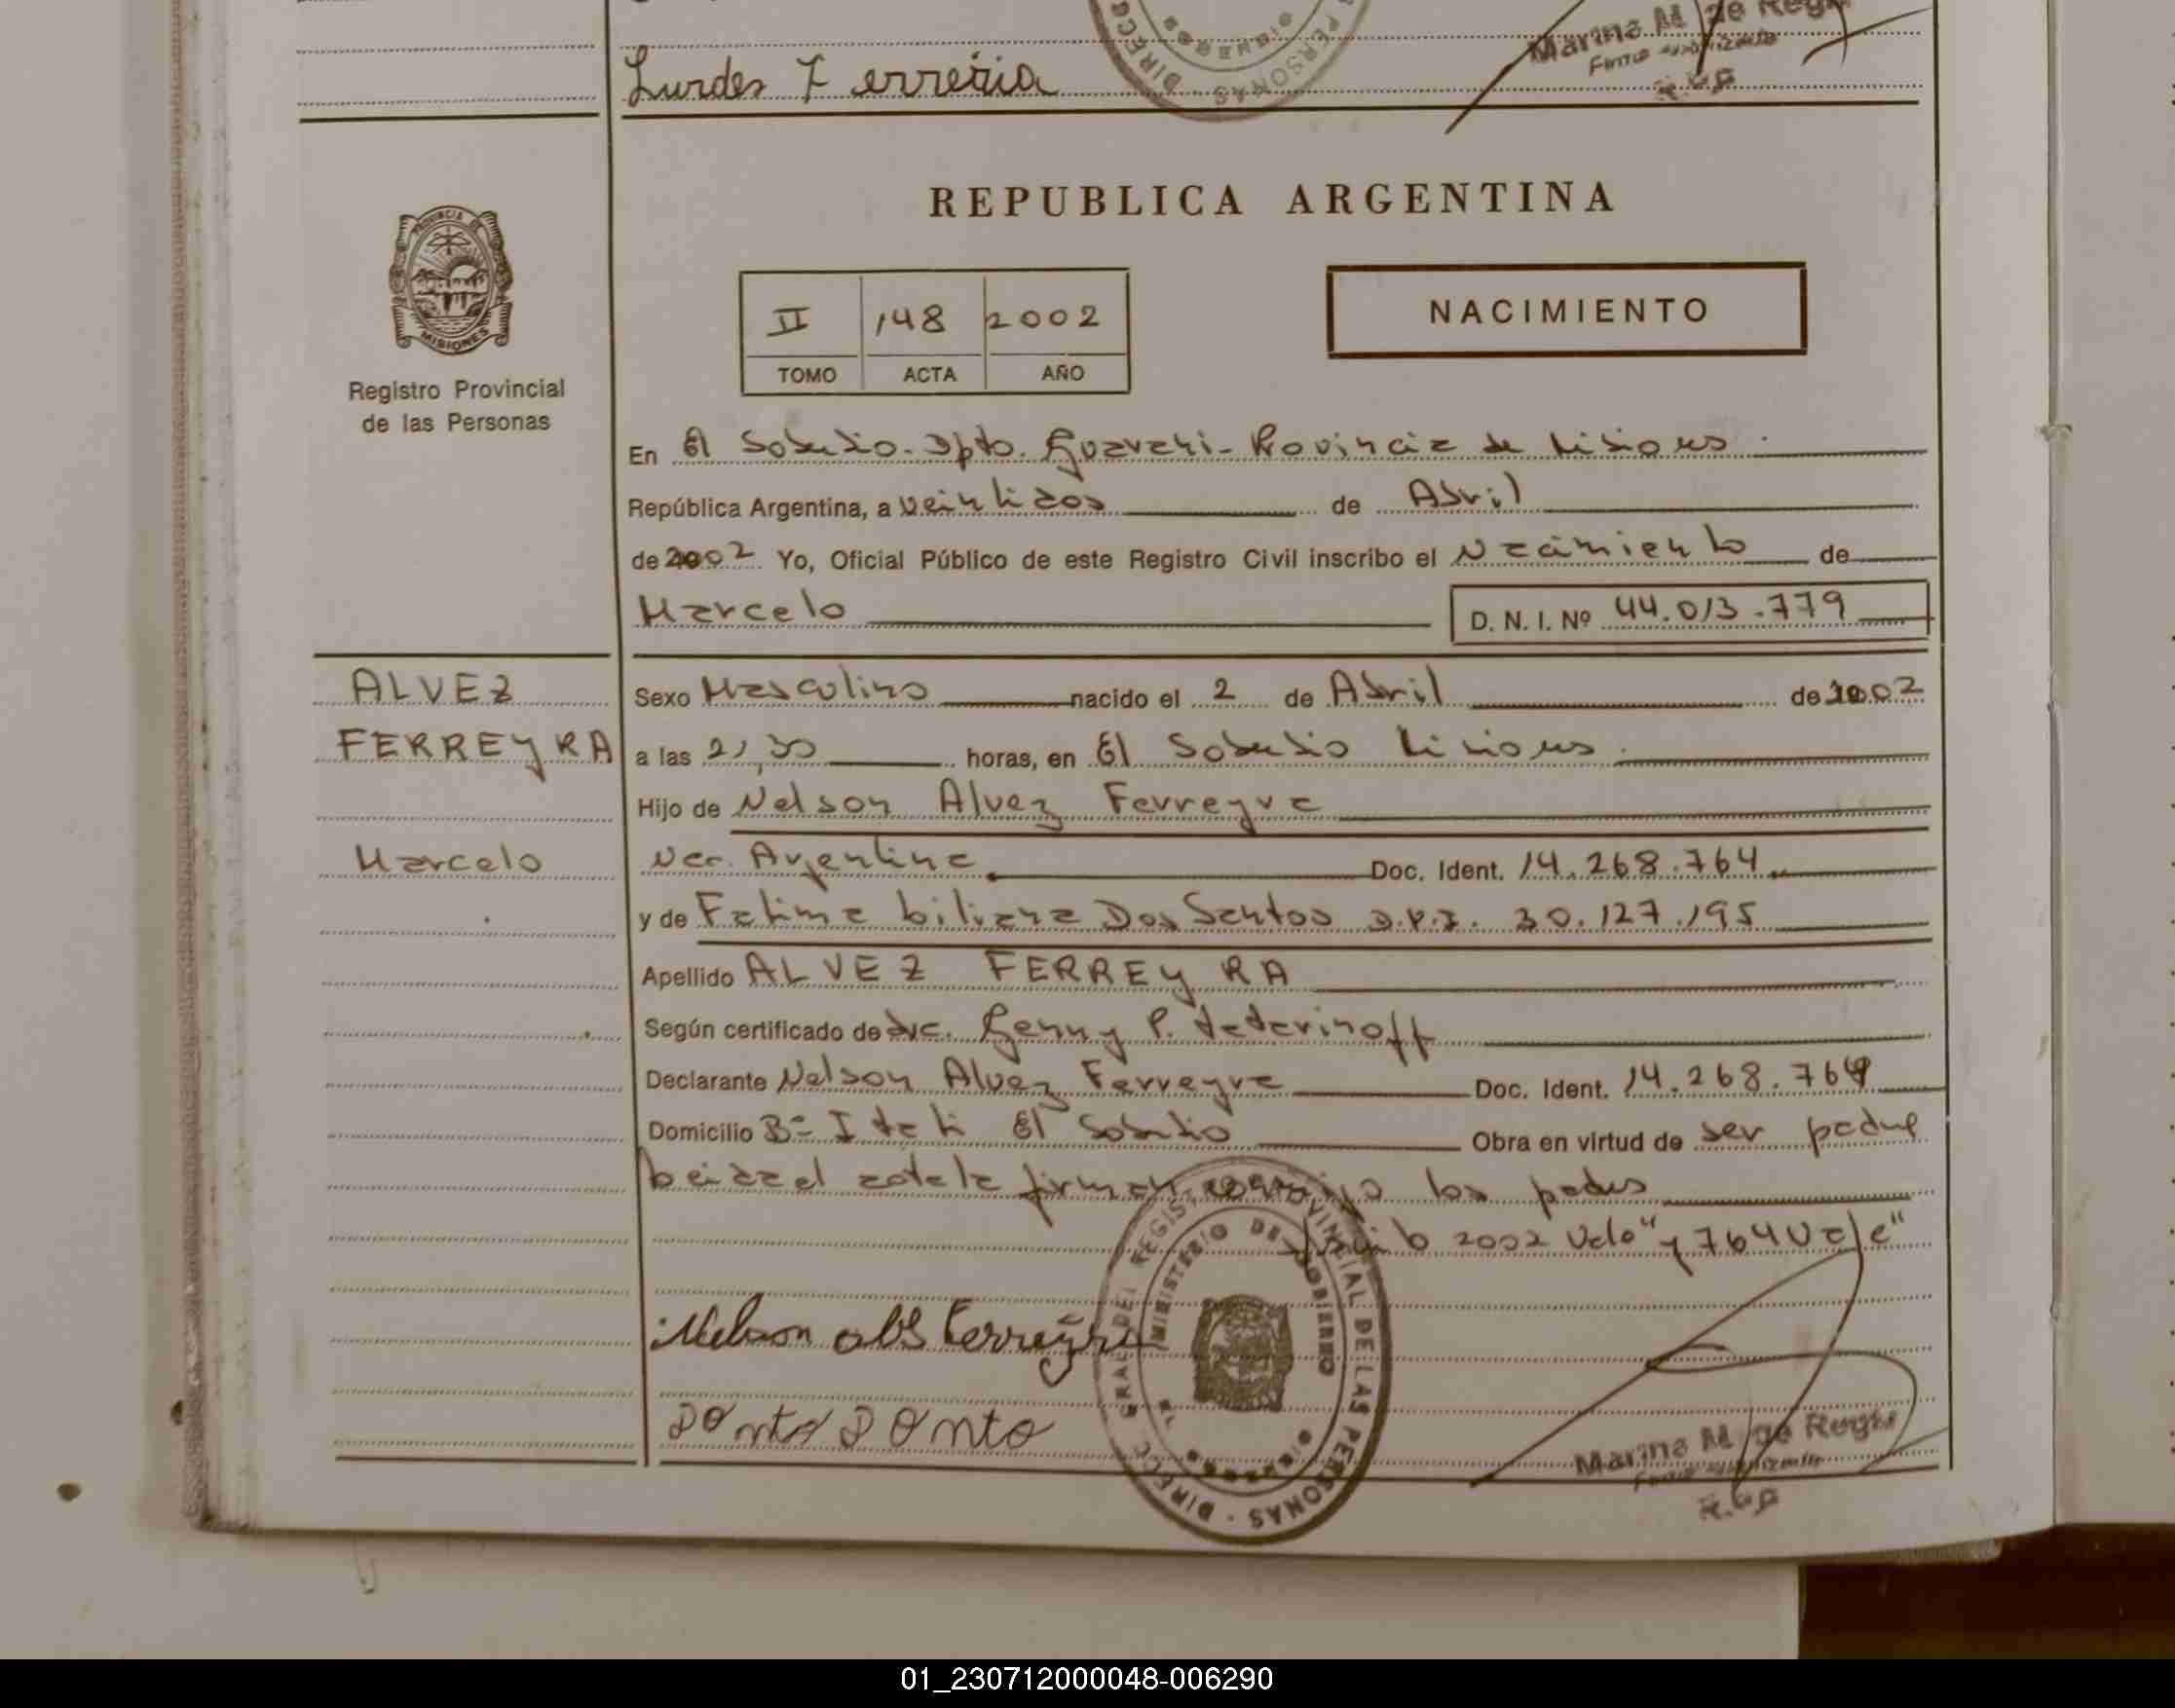 Lurdes Ferreira
Marina M. de Regis
Firma autorizada
R.P.P
REPUBLICA ARGENTINA
PROVINCIA DE MISIONES
Registro Provincial
de las Personas
II 148 2002
TOMO ACTA AÑO
NACIMIENTO
En El Soberbio. Dpto. Guarani - Provincia de Misiones.
República Argentina, a veintidos de Abril
de 2002 Yo, Oficial Público de este Registro Civil inscribo el Nacimiento de
Marcelo D. N. I. Nº 44.013.779
ALVEZ
FERREYRA
Marcelo
Sexo Masculino nacido el 2 de Abril de 2002
a las 21,30 horas, en El Soberbio Misiones.
Hijo de Nelson Alvez Ferreyra
Nac. Argentina Doc. Ident. 14.268.764
y de Fatima Liliana Dos Santos D.N.I. 30.127.195
Apellido ALVEZ FERREYRA
Según certificado de Genny P.
Declarante Nelson Alvez Ferreyra Doc. Ident. 14.268.764
Domicilio Bº Itati El Soberbio Obra en virtud de ser padre
Leida el acta la firman conmigo los padres
2002 Vale" y 764 Vale"
Nelson alves Ferreyra
DIRECC. GRAL. DEL REGISTRO PROVINCIAL DE LAS PERSONAS
MINISTERIO DE GOBIERNO
Marina M. de Regis
Firma autorizada
R.P.P
01_230712000048-006290